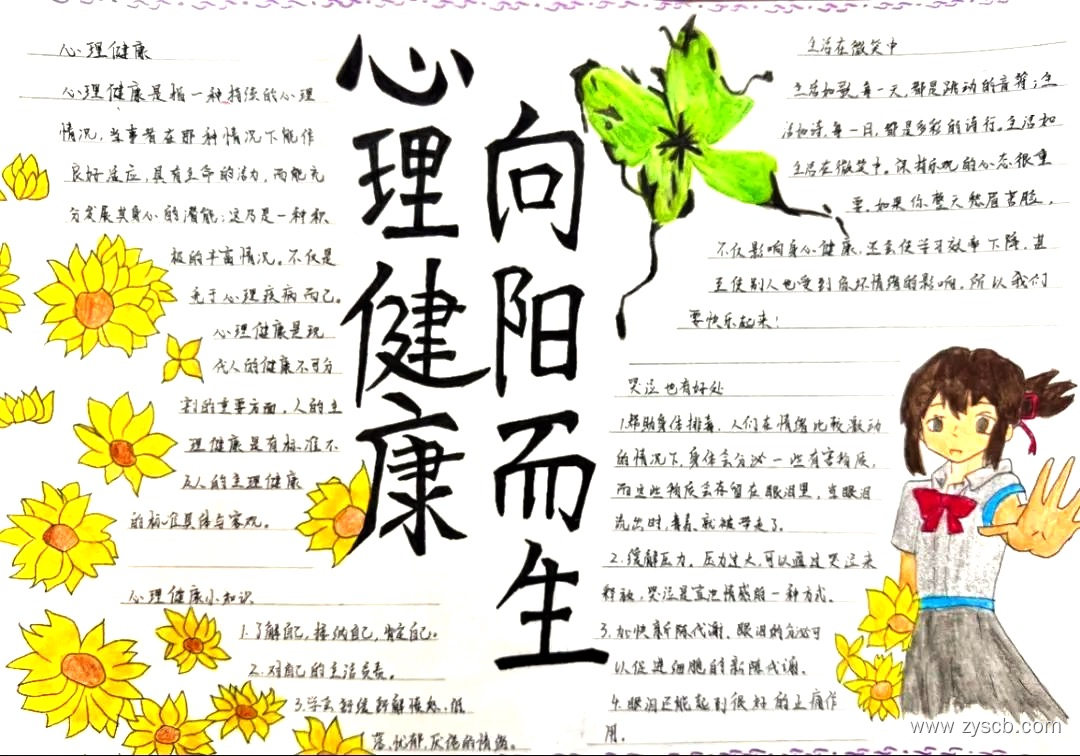 心理健康
向阳而生
心理健康
心理健康是指一种持续的心理
情况，当事者在那种情况下能作
良好适应，具有生命的活力，而能充
分发展其身心的潜能；这乃是一种积
极的丰富情况。不仅是
免于心理疾病而己。
心理健康是现
代人的健康不可分
割的重要方面，人的生
理健康是有标准不
及人的生理健康
的标准具体与客观。
心理健康小知识
1.了解自己，接纳自己，肯定自己。
2.对自己的生活负责。
3.学会舒缓舒解愤怒、低
落、忧郁、厌倦的情绪。
生活在微笑中
生活如歌，每一天，都是跳动的音符；生
活如诗，每一日，都是多彩的诗行。生活如
生活在微笑中。保持乐观的心态很重
要，如果你整天愁眉苦脸，
不仅影响身心健康，还会使学习效率下降，甚
至使别人也受到你坏情绪的影响，所以我们
要快乐起来！
哭泣也有好处
1.帮助身体排毒，人们在情绪比较激动
的情况下，身体会分泌一些有害物质，
而这些物质会存留在眼泪里，当眼泪
流出时，毒素就被带走了。
2.缓解压力。压力过大，可以通过哭泣来
释放，哭泣是宣泄情感的一种方式。
3.加快新陈代谢，眼泪的分泌可
以促进细胞的新陈代谢。
4.眼泪还能起到很好的止痛作
用。
www.zyscb.com